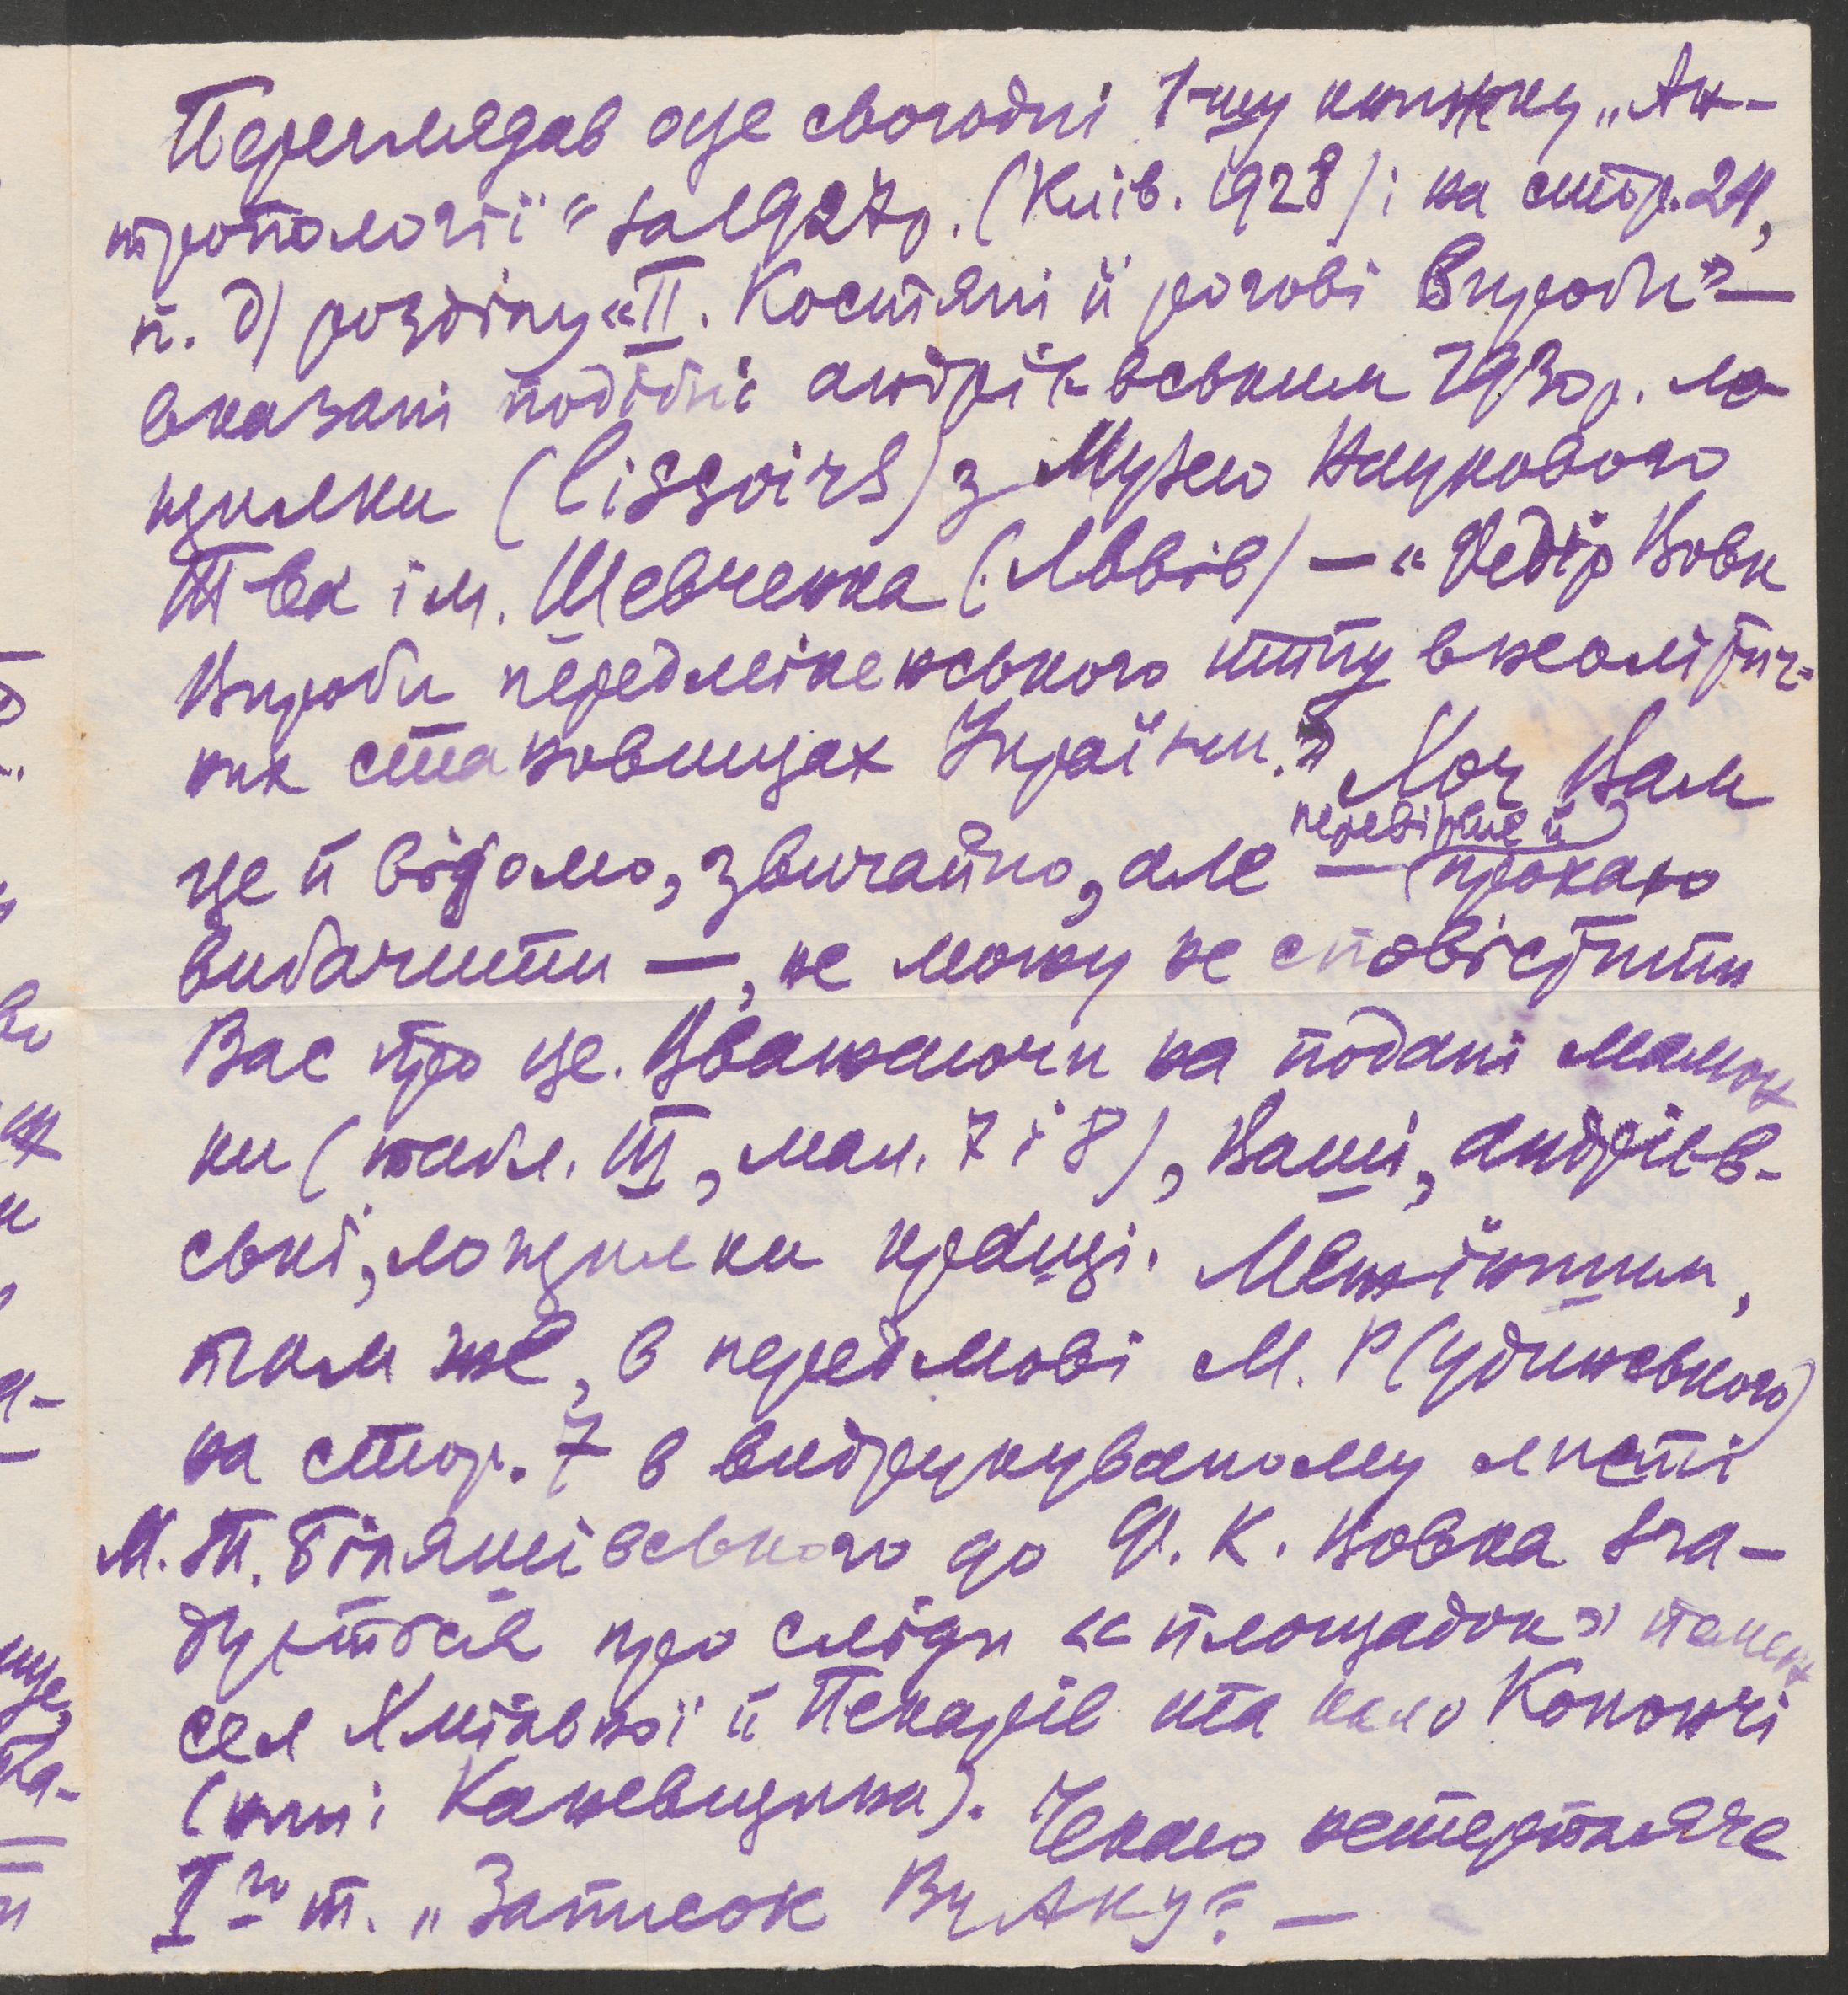 Переглядав оце сьогодні 1-шу книжку „Ан-
тропології“ за 1927 р. (Київ. 1928) і на стор. 24,
п. д) розділу «II. Костяні й рогові вироби» —
вказані подібні андріївським 1930 р. ло
щилки (lissoirs) з Музею Наукового
Т-ва ім. Шевченка (Львів) — «Федір Вовк
Вироби передмікенського типу в неолітич-
них становищах України.» Хоч Вам
це й відомо, звичайно, але — перевірте й прохаю
вибачити —, не можу не сповістити
Вас про це. Вважаючи на подані малюн
ки (табл. III, мал. 7 і 8), Ваші, андріїв-
ські, лощилки кращі. Між іншим,
там же, в передмові М. Р(удинського)
на стор. 7 в видрукуваному листі
М. Т. Біляшівського до Ф. К. Вовка зга-
дується про сліди «площадок»
сел Хмільної й Пекарів та коло Конончі
(Каневщина). Чекаю нетерпляче
I-го т. „Записок ВУАКу“. —